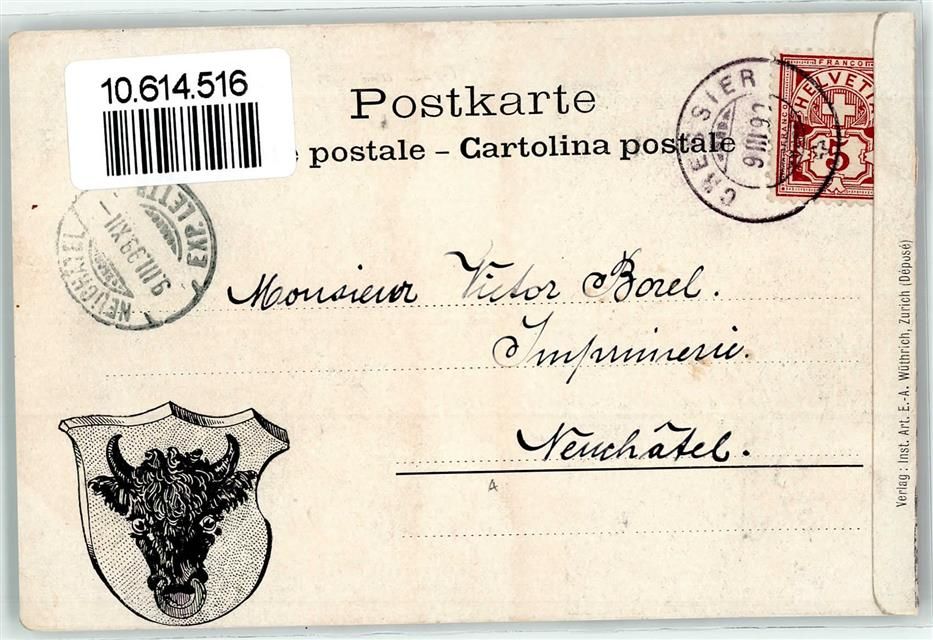 10.614.516
Postkarte
e postale – Cartolina postale
CRESSIER
FRANCO
HELVETIA
FRANCO
5
EXP. LETT
9.III.99.XI
NEUCHÂTEL
Monsieur Victor Borel.
Imprimerie.
Neuchâtel.
Verlag: Inst. Art. E.-A. Wüthrich, Zurich (Déposé)